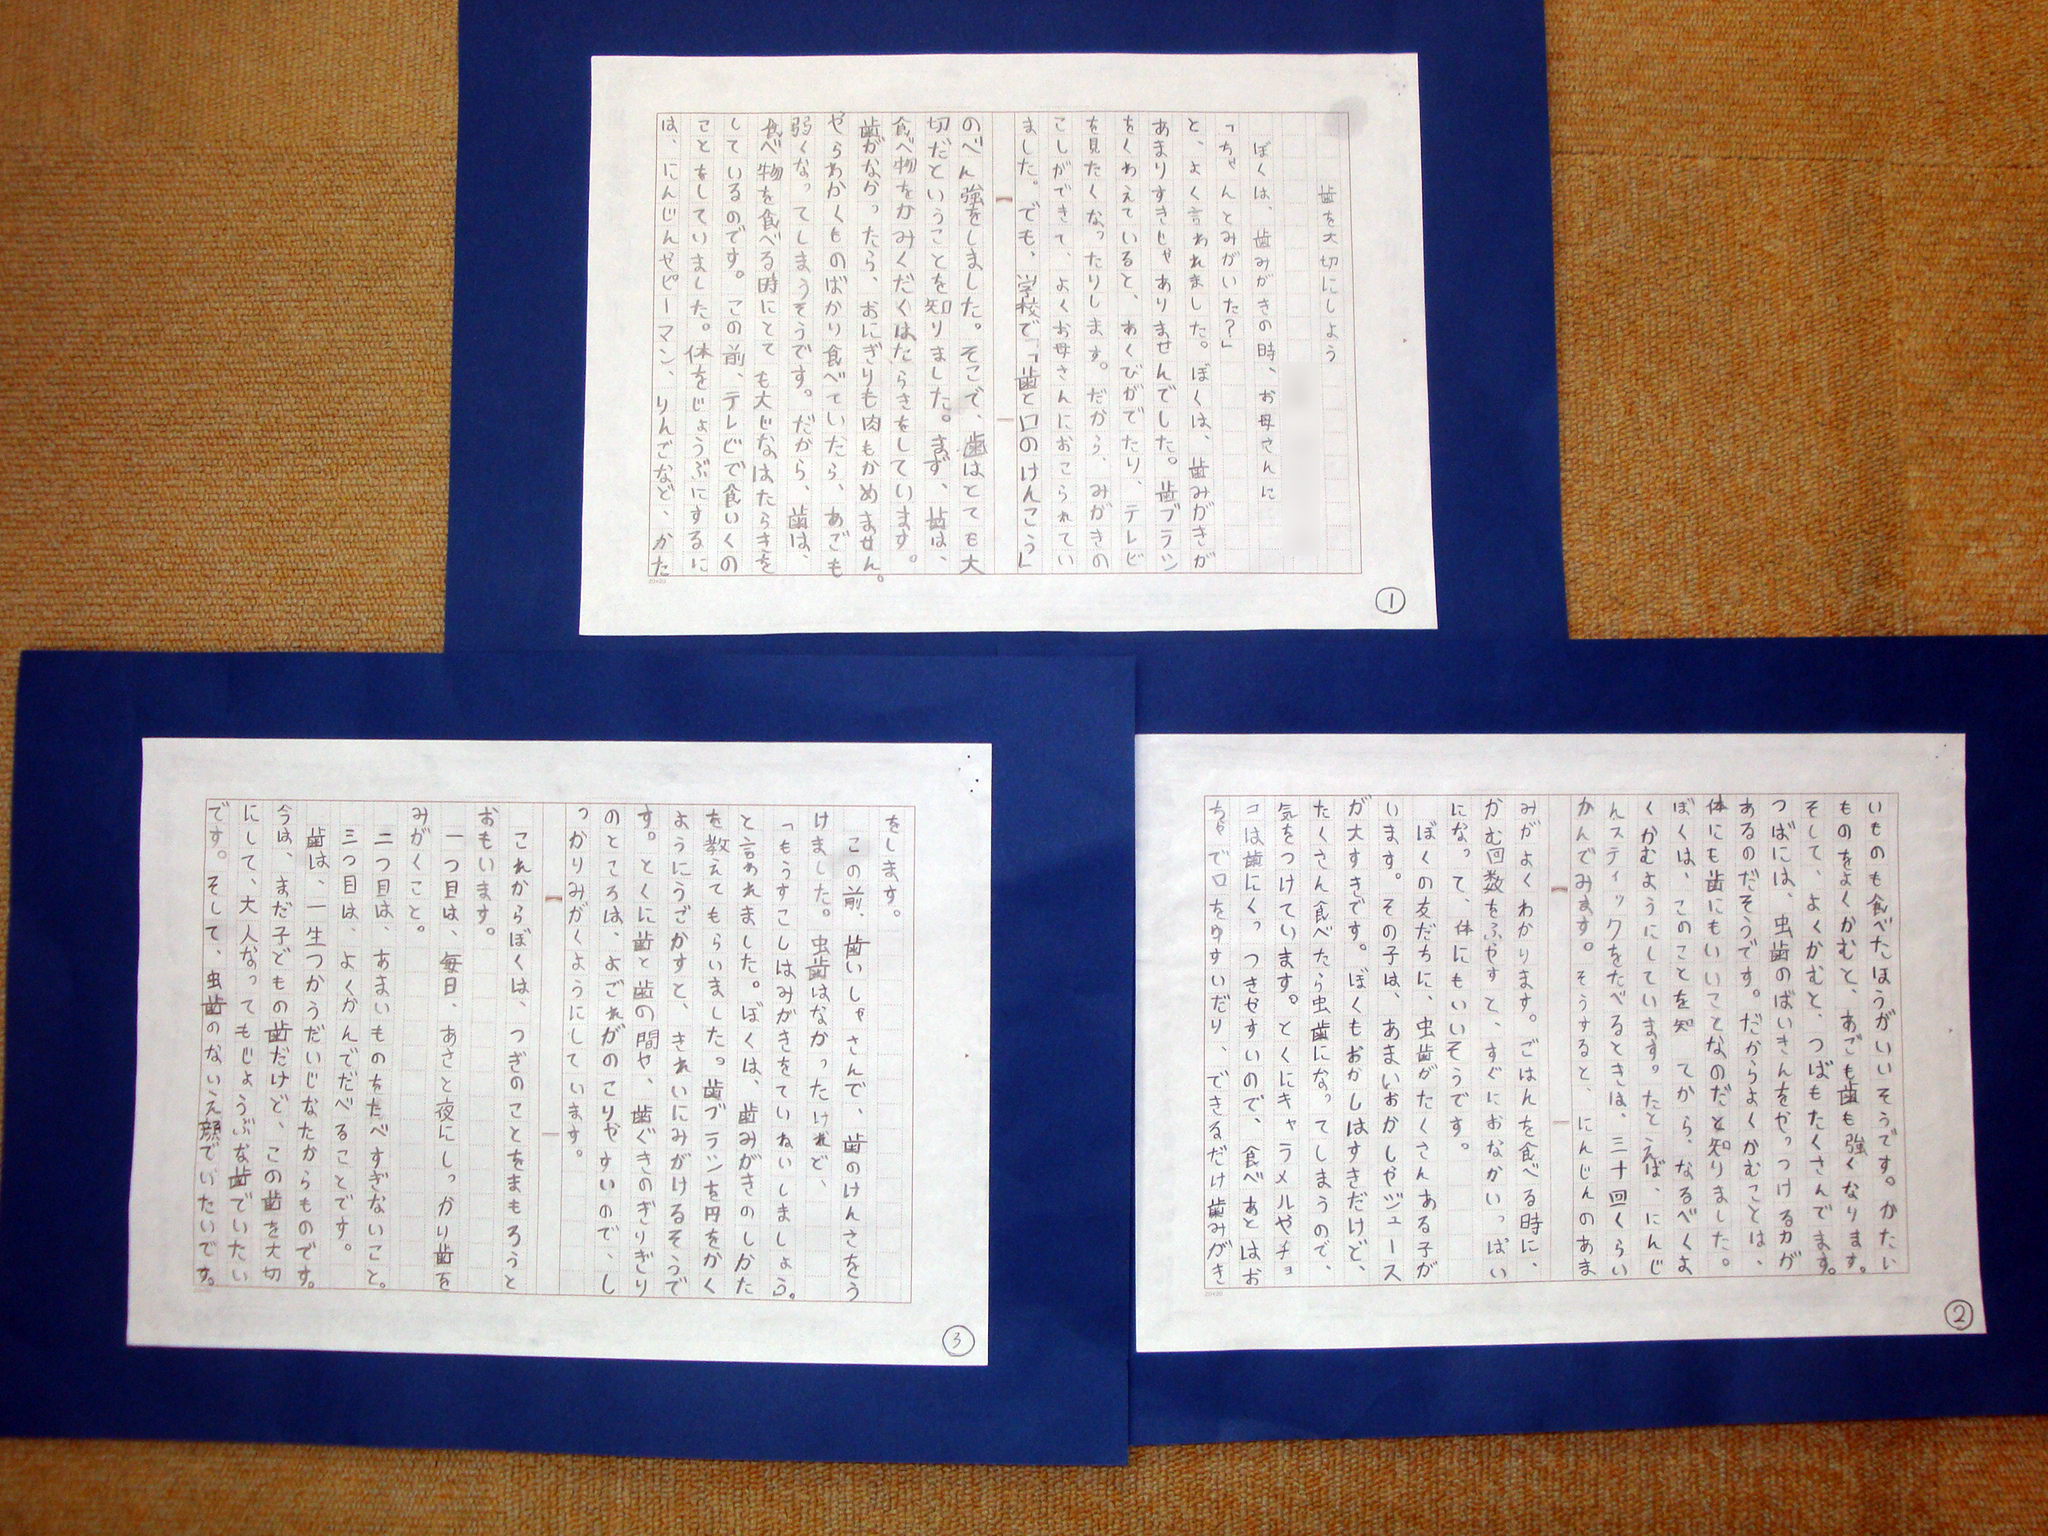 歯を大切にしよう
ぼくは、歯みがきの時、お母さんに
「ちゃんとみがいた?」
と、よく言われました。ぼくは、歯みがきが
あまりすきじゃありませんでした。歯ブラシ
をくわえていると、あくびがでたり、テレビ
を見たくなったりします。だから、みがきの
こしができて、よくお母さんにおこられてい
ました。でも、学校で「歯と口のけんこう」
のべん強をしました。そこで、歯はとても大
切だということを知りました。まず、歯は、
食べ物をかみくだくはたらきをしています。
歯がなかったら、おにぎりも肉もかめません。
やらわかくものばかり食べていたら、あごも
弱くなってしまうそうです。だから、歯は、
食べ物を食べる時にとても大じなはたらきを
しているのです。この前、テレビで食いくの
ことをしていました。体をじょうぶにするに
は、にんじんやピーマン、りんごなど、かた
①
いものも食べたほうがいいそうです。かたい
ものをよくかむと、あごも歯も強くなります。
そして、よくかむと、つばもたくさんでます。
つばには、虫歯のばいきんをやっつける力が
あるのだそうです。だからよくかむことは、
体にも歯にもいいことなのだと知りました。
ぼくは、このことを知 てから、なるべくよ
くかむようにしています。たとえば、にんじ
んスティックをたべるときは、三十回くらい
かんでみます。そうすると、にんじんのあま
みがよくわかります。ごはんを食べる時に、
かむ回数をふやすと、すぐにおなかいっぱい
になって、体にもいいそうです。
ぼくの友だちに、虫歯がたくさんある子が
います。その子は、あまいおかしやジュース
が大すきです。ぼくもおかしはすきだけど、
たくさん食べたら虫歯になってしまうので、
気をつけています。とくにキャラメルやチョ
コは歯にくっつきやすいので、食べあとはお
ちゃで口をゆすいだり、できるだけ歯みがき
②
をします。
この前、歯いしゃさんで、歯のけんさをう
けました。虫歯はなかったけれど、
「もうすこしはみがきをていねいしましょう。
と言われました。ぼくは、歯みがきのしかた
を教えてもらいました。歯ブラシを円をかく
ようにうごかすと、きれいにみがけるそうで
す。とくに歯と歯の間や、歯ぐきのぎりぎり
のところは、よごれがのこりやすいので、し
っかりみがくようにしています。
これからぼくは、つぎのことをまもろうと
おもいます。
一つ目は、毎日、あさと夜にしっかり歯を
みがくこと。
二つ目は、あまいものをたべすぎないこと。
三つ目は、よくかんでだべることです。
歯は、一生つかうだいじなたからものです。
今は、まだ子どもの歯だけど、この歯を大切
にして、大人なってもじょうぶな歯でいたい
です。そして、虫歯のないえ顔でいたいです。
③